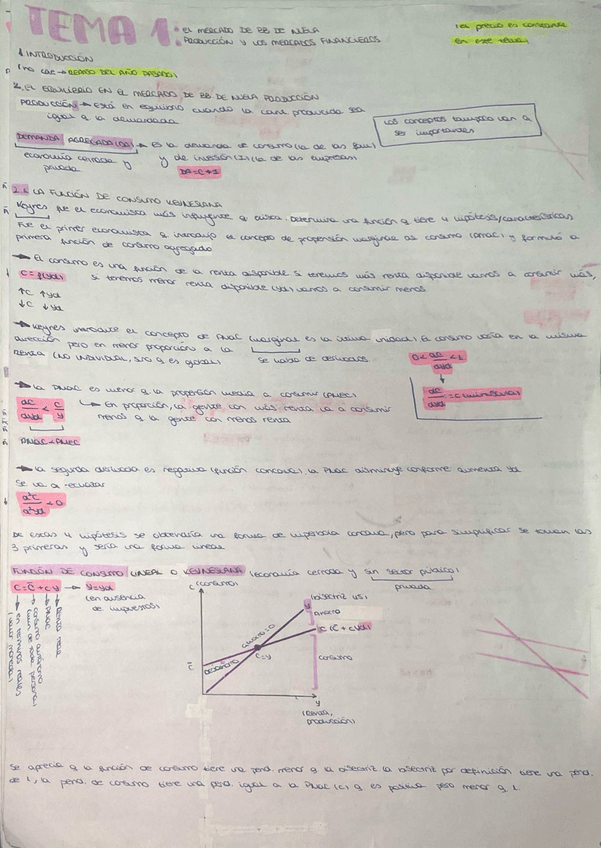 TEMA 1: EL MERCADO DE BB DE NUEVA
PRODUCCIÓN Y LOS MERCADOS FINANCIEROS
el precio es constante
en este tema
1. INTRODUCCIÓN
(no cae → REPASO DEL AÑO PASADO)
2. EL EQUILIBRIO EN EL MERCADO DE BB DE NUEVA PRODUCCIÓN
PRODUCCIÓN → está en equilibrio cuando la cant. producida sea
igual a la demandada
los conceptos también van a
ser importantes
DEMANDA AGREGADA (DA) → es la demanda de consumo (la de las fam)
economía cerrada y y de inversión (I) (la de las empresas)
privada DA = C + I
2.1 LA FUNCIÓN DE CONSUMO KEYNESIANA
Keynes fue el economista más influyente q existe. Determina una función q tiene 4 hipótesis/características
Fue el primer economista q introdujo el concepto de propensión marginal al consumo (PMaC) y formuló la
primera función de consumo agregado
→ El consumo es una función de la renta disponible si tenemos más renta disponible vamos a consumir más,
C = f(yd) si tenemos menor renta disponible (yd) vamos a consumir menos
↑C ↑yd
↓C ↓yd
→ Keynes introduce el concepto de PMaC (marginal es la última unidad). El consumo varía en la misma
dirección pero en menor proporción a la
renta (no individual, sino q es global) se habla de derivadas
0 < dC/dyd < 1
dC/dyd = c (minúscula)
→ la PMaC es menor q la propensión media a consumir (PMeC)
dC/dyd < C/y → En proporción, la gente con más renta va a consumir
menos q la gente con menos renta
PMaC < PMeC
→ la segunda derivada es negativa (función cóncava), la PMaC disminuye conforme aumenta yd
se va a recular
d²C/d²yd < 0
De estas 4 hipótesis se obtendría una forma de hipérbola cóncava, pero para simplificar se toman las
3 primeras y sería una forma lineal
FUNCIÓN DE CONSUMO LINEAL O KEYNESIANA (economía cerrada y sin sector público)
privada
C = C̄ + cy → y = yd
(en ausencia
de impuestos)
renta real
PMaC
consumo autónomo
en términos reales
(valor monetario)
C (consumo)
(bisectriz 45°)
y
ahorro
C (C̄ + cyd)
ahorro = 0
desahorro
C = y
consumo
C̄
y
(renta,
producción)
Se aprecia q la función de consumo tiene una pend. menor q la bisectriz. la bisectriz por definición tiene una pend.
de 1, la pend. de consumo tiene una pend. igual a la PMaC (c) q es positiva pero menor q 1.